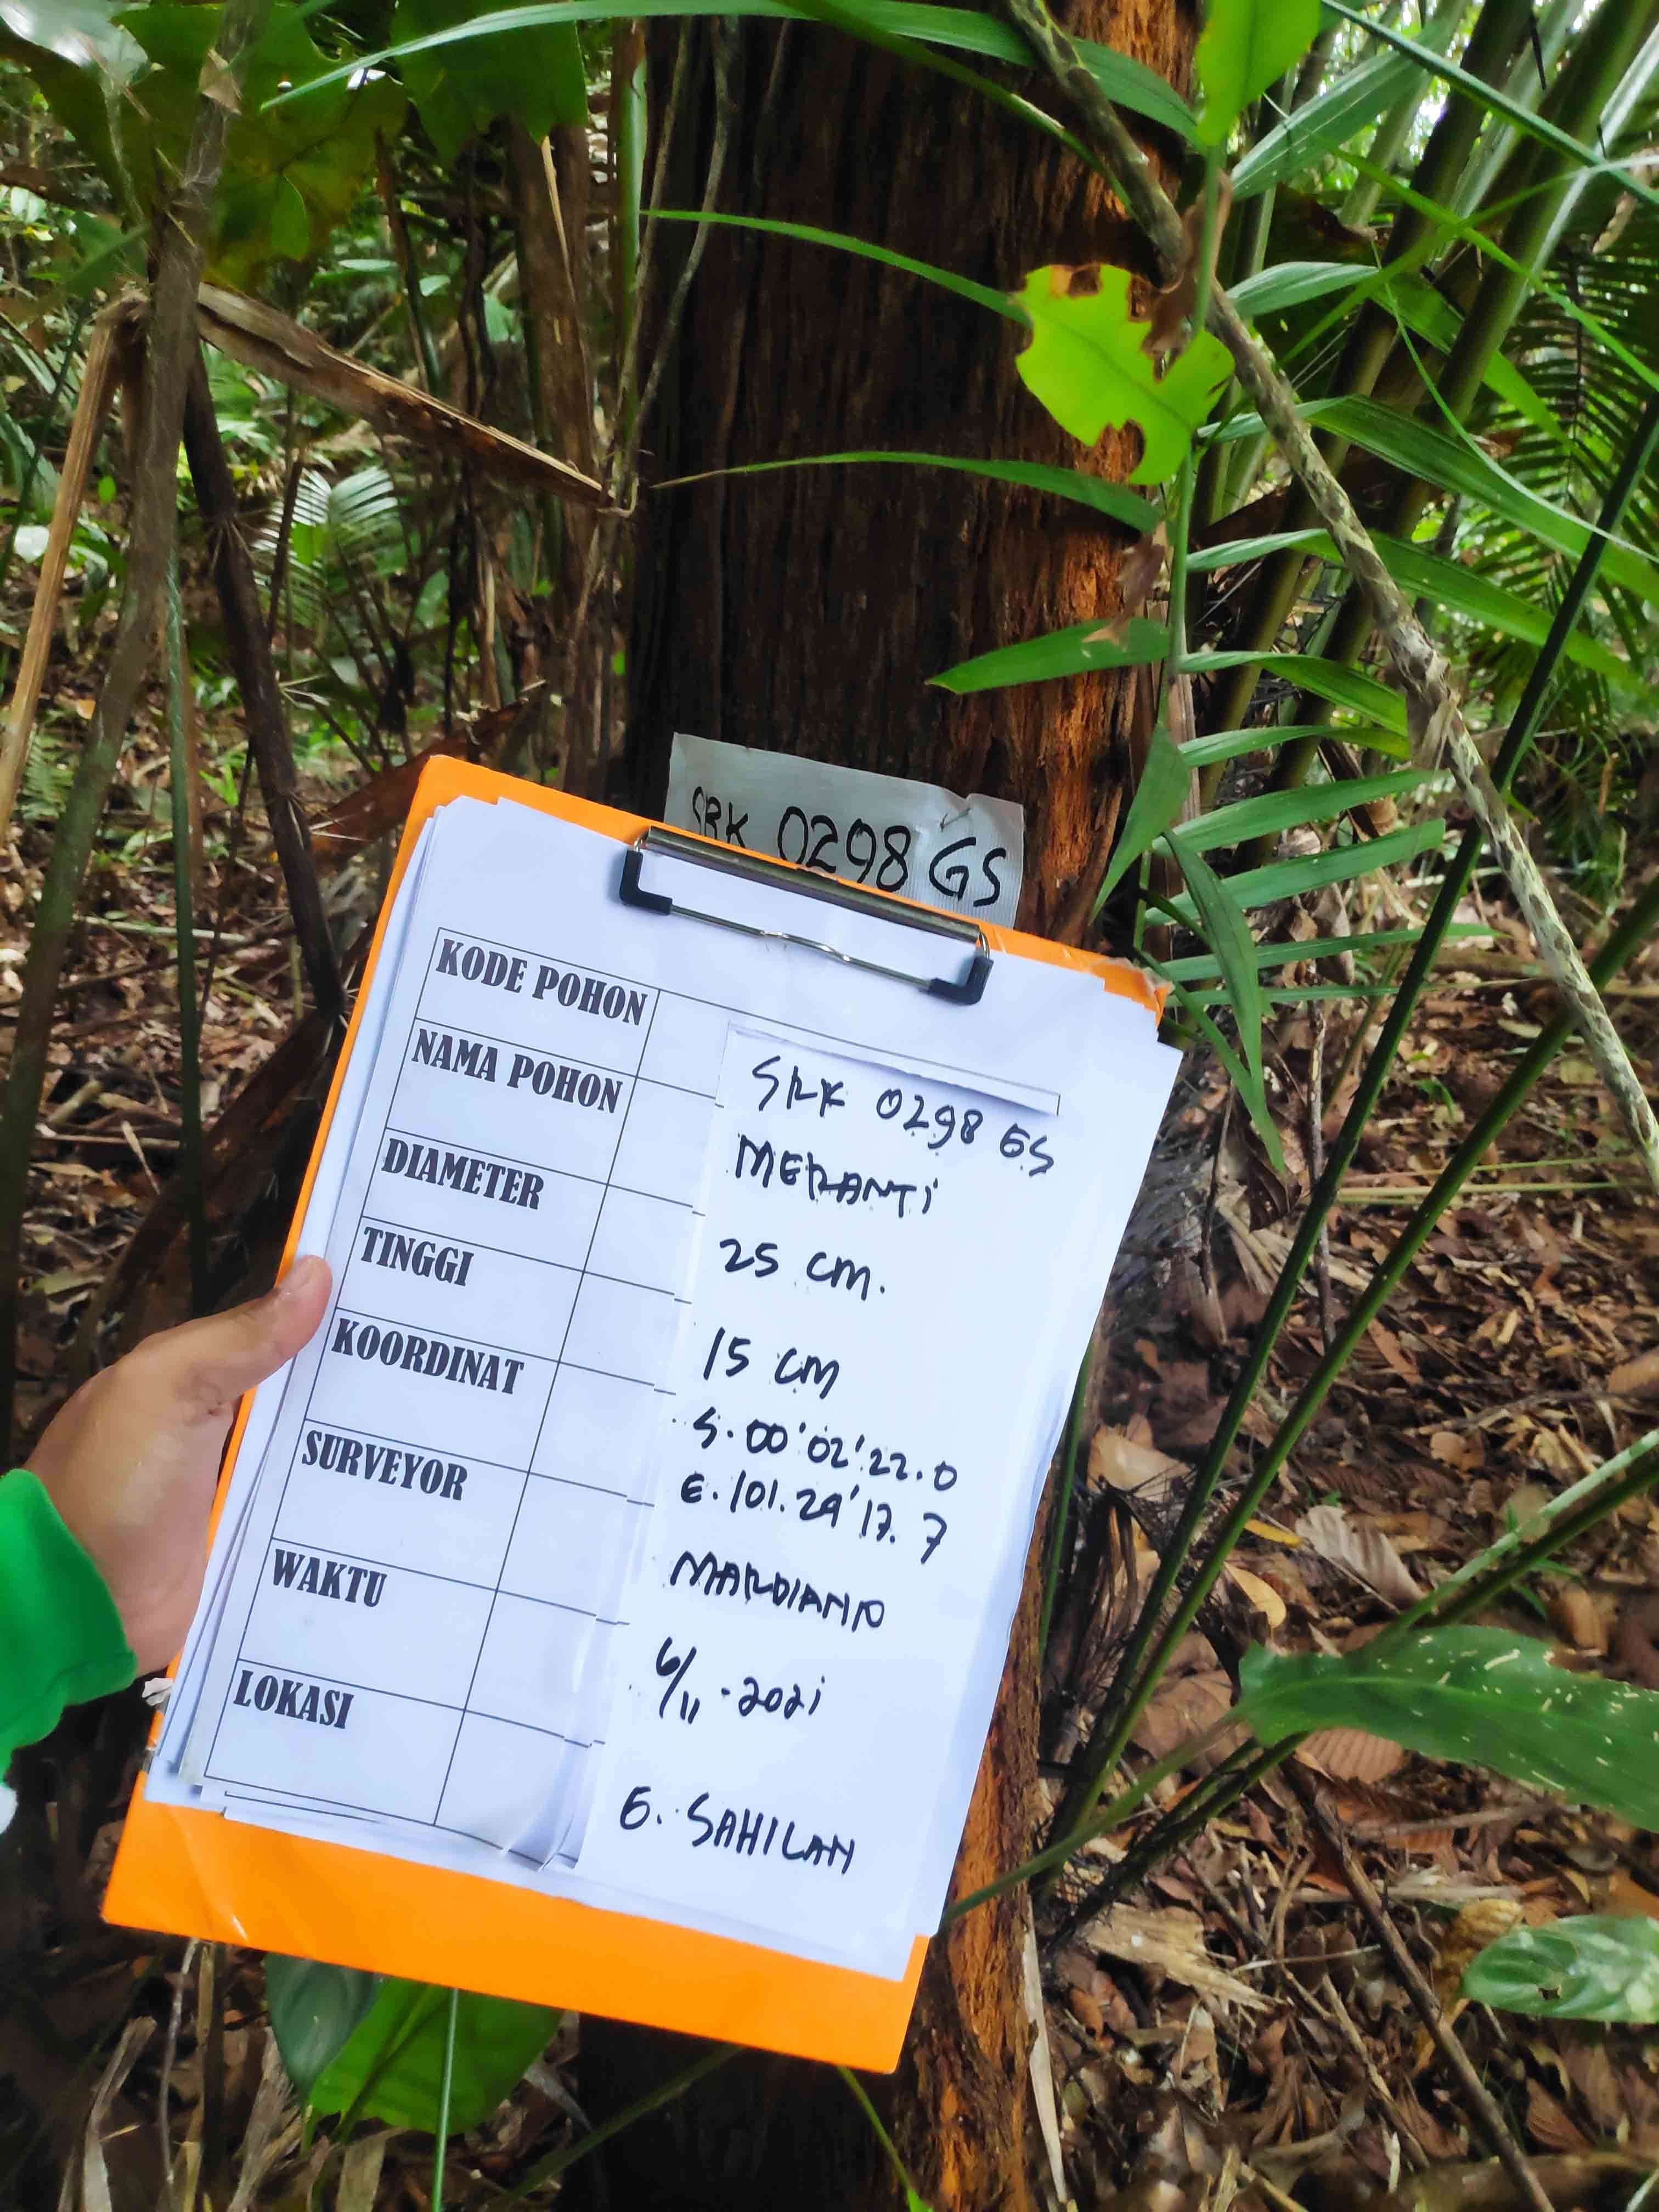 SRK 0298 GS
KODE POHON SRK 0298 GS
NAMA POHON MERANTI
DIAMETER 25 cm.
TINGGI 15 cm
KOORDINAT S.00'02'22.0
E.101.29'17.7
SURVEYOR MARDIANO
WAKTU 6/11-2021
LOKASI G. SAHILAN